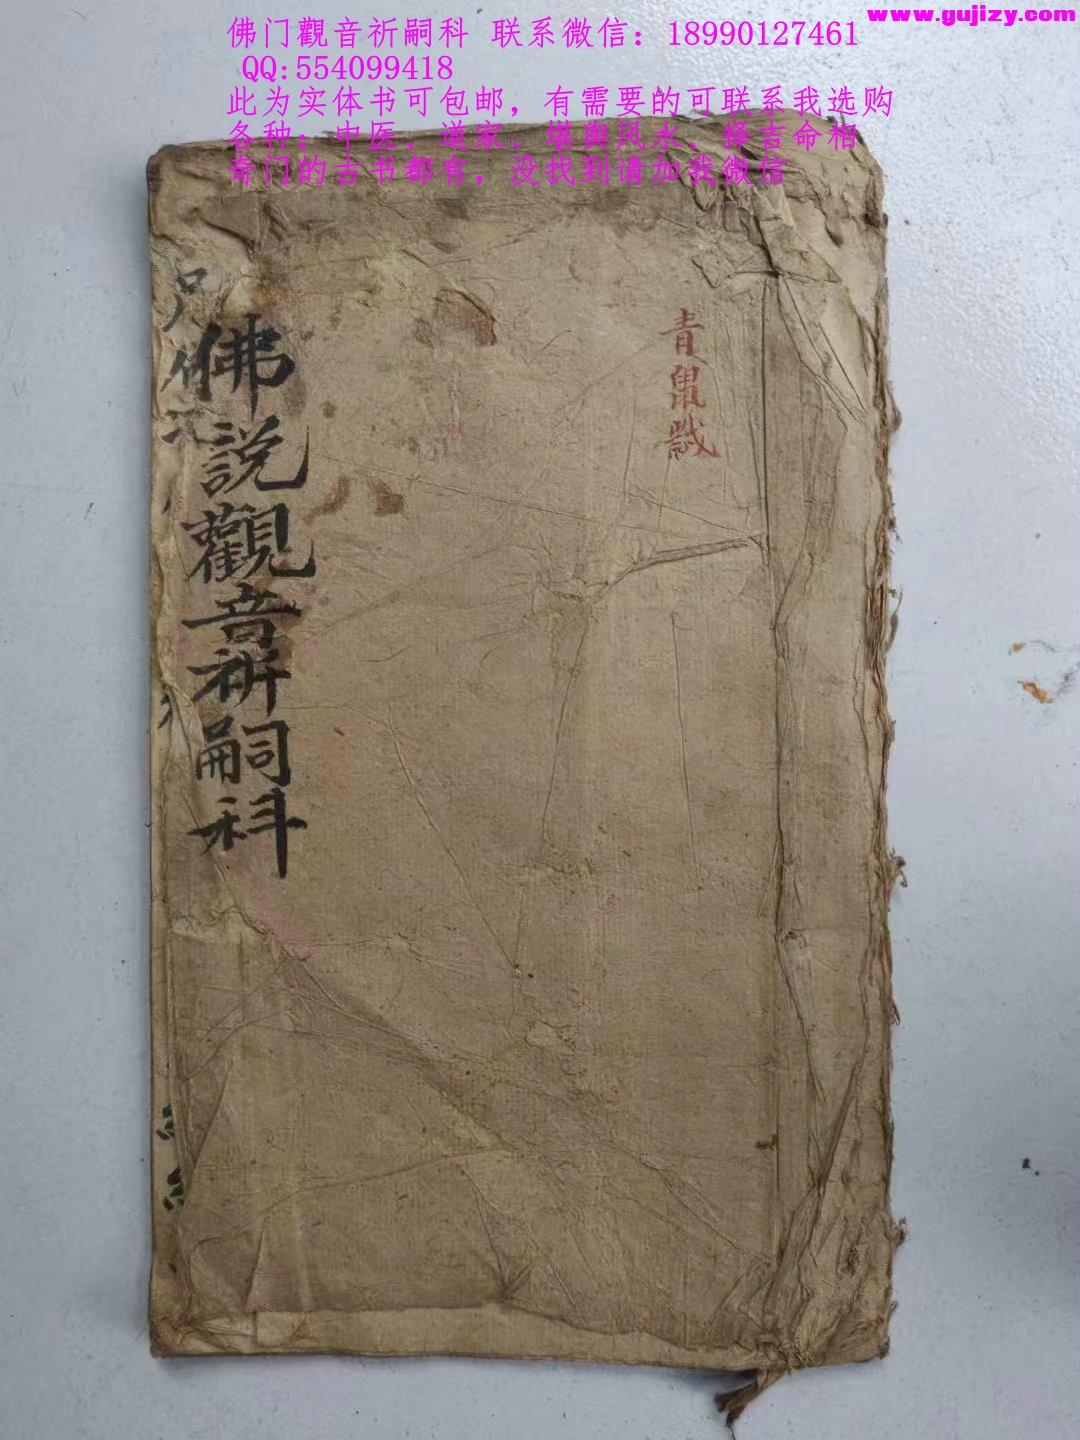 www.gujizy.com
佛门觀音祈嗣科 联系微信：18990127461
QQ:554099418
此为实体书可包邮，有需要的可联系我选购
各种：中医、道家、堪舆风水、择吉命相
奇门的古书都有，没找到请加我微信
青
佛說觀音祈嗣科